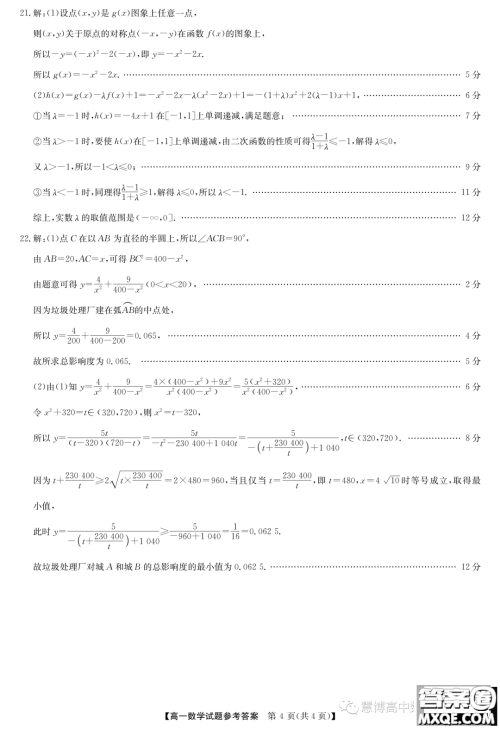 21. 解:(1)设点(x,y)是 g(x)图象上任意一点,
则(x,y)关于原点的对称点(-x,-y)在函数 f(x)的图象上,
所以-y=(-x)²-2(-x),即 y=-x²-2x.
所以 g(x)=-x²-2x. …… 5 分
(2)h(x)=g(x)-λf(x)+1=-x²-2x-λ(x²-2x)+1=-(1+λ)x²+2(λ-1)x+1, …… 6 分
①当 λ=-1 时,h(x)=-4x+1 在[-1,1]上单调递减,满足题意; …… 7 分
②当 λ>-1 时,要使 h(x)在[-1,1]上单调递减,由二次函数的性质可得 (λ-1)/(1+λ)≤-1,解得 λ≤0,
又 λ>-1,所以-1<λ≤0; …… 9 分
③当 λ<-1 时,同理得 (λ-1)/(1+λ)≥1,解得 λ≤0,所以 λ<-1. …… 11 分
综上,实数 λ 的取值范围是(-∞,0]. …… 12 分
22. 解:(1)点 C 在以 AB 为直径的半圆上,所以∠ACB=90°,
由 AB=20,AC=x,可得 BC²=400-x²,
由题意可得 y=4/x²+9/(400-x²)(0<x<20), …… 2 分
因为垃圾处理厂建在弧AB的中点处,
所以 y=4/200+9/(400-200)=0.065, …… 4 分
故所求总影响度为 0.065. …… 5 分
(2)由(1)知 y=4/x²+9/(400-x²)=(4×(400-x²)+9x²)/(x²(400-x²))=5(x²+320)/(x²(400-x²)), …… 6 分
令 x²+320=t∈(320,720),则 x²=t-320,
所以 y=5t/((t-320)(720-t))=5t/(-t²-230 400+1 040t)=5/(-(t+230 400/t)+1 040),t∈(320,720). …… 8 分
因为 t+230 400/t≥2√(t×230 400/t)=2×480=960,当且仅当 t=230 400/t,即 t=480,x=4√10时等号成立,取得最
小值,
此时 y=5/(-(t+230 400/t)+1 040)≥5/(-960+1 040)=1/16=0.062 5.
故垃圾处理厂对城 A 和城 B 的总影响度的最小值为 0.062 5. …… 12 分
【高一数学试题参考答案 第 4 页(共 4 页)】
慧博高中
答案圈
MXQE.COM